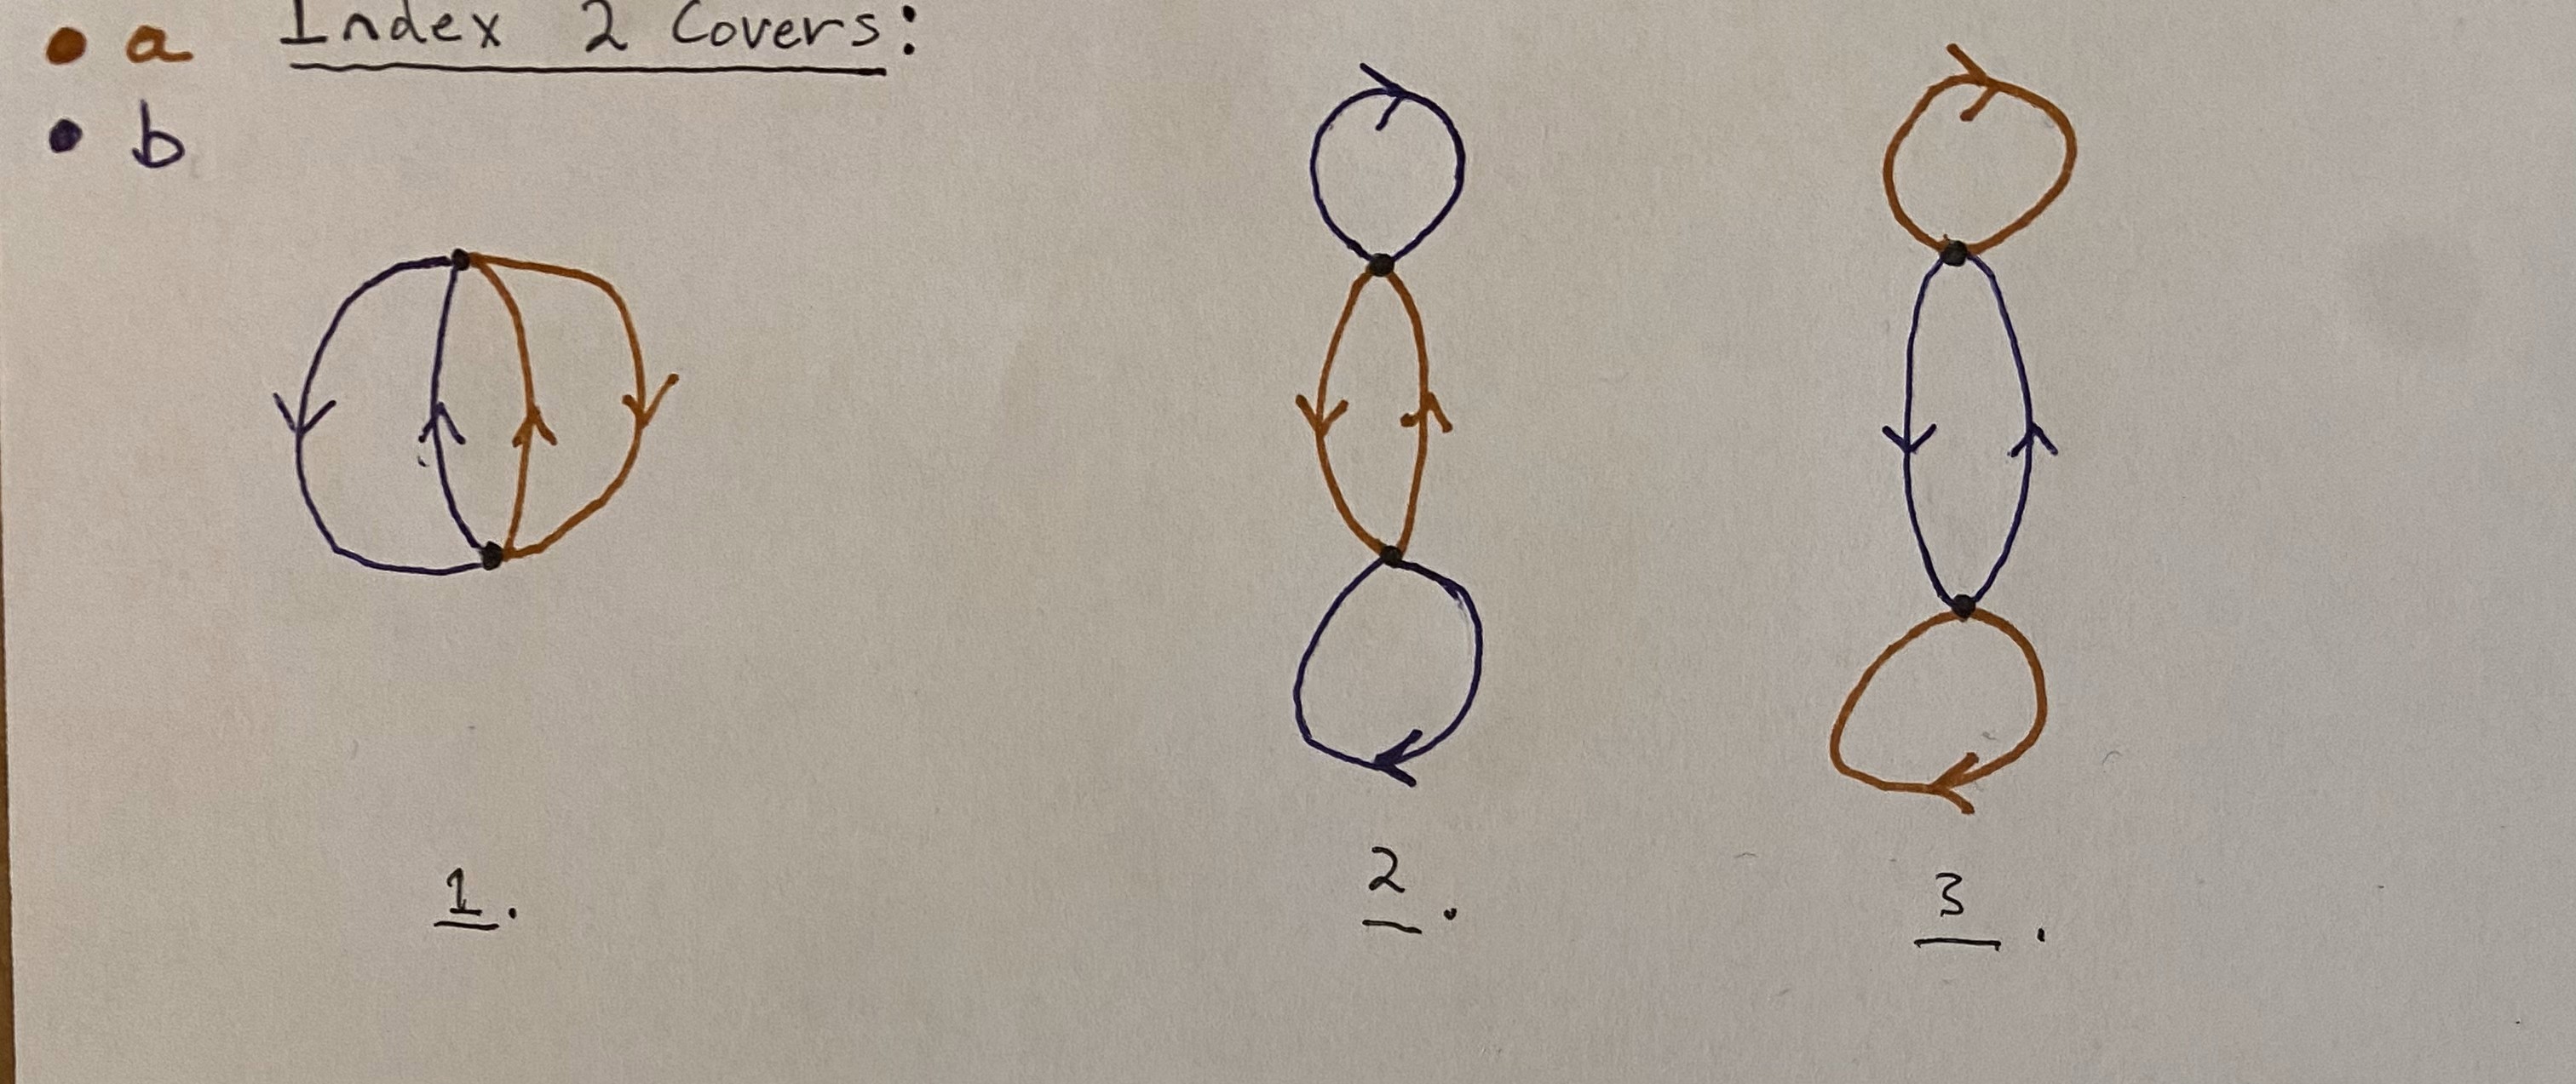 a Index 2 Covers:
b
1.
2.
3.